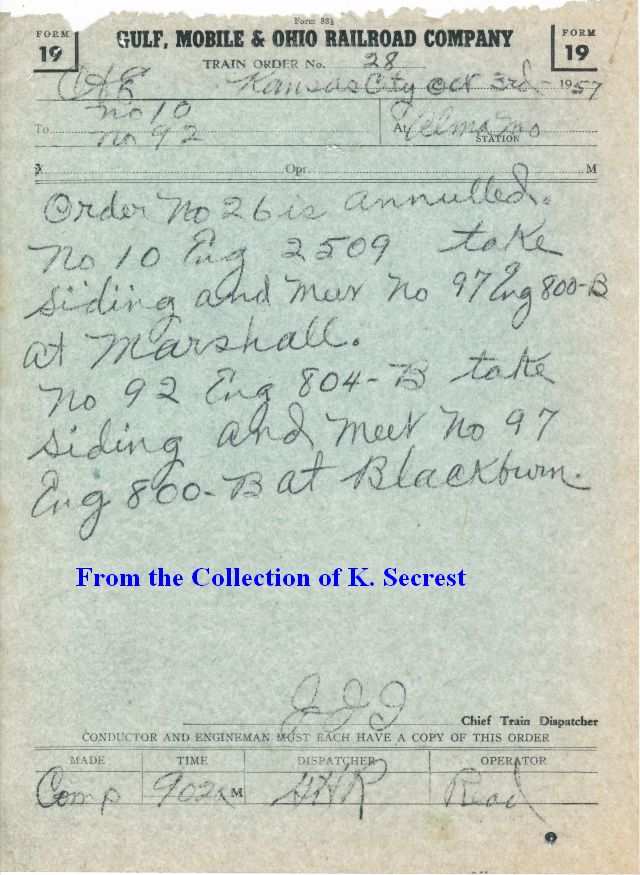 Form 88½
FORM 19
GULF, MOBILE & OHIO RAILROAD COMPANY
FORM 19
TRAIN ORDER No. 28
Kansas City Oct 3rd 1957
C&E
No 10
To No 92
At Velma Mo
STATION
X Opr. M
Order No 26 is annulled.
No 10 Eng 2509 take
siding and Meet No 97 Eng 800-B
at Marshall.
No 92 Eng 804-B take
siding and Meet No 97
Eng 800-B at Blackburn.
From the Collection of K. Secrest
JJJ
Chief Train Dispatcher
CONDUCTOR AND ENGINEMAN MUST EACH HAVE A COPY OF THIS ORDER
MADE TIME DISPATCHER OPERATOR
Comp 902a M HHR Read